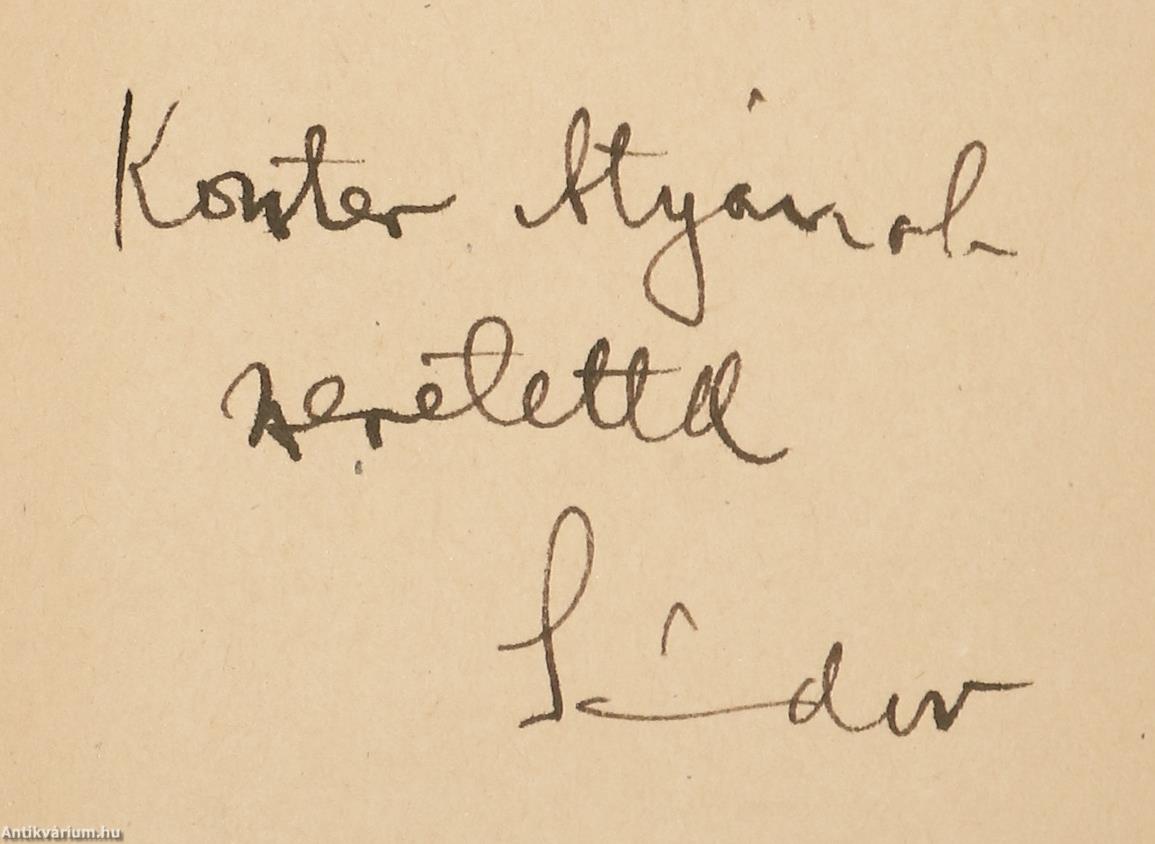 Koszter Atyának
szeretettel
Sándor
Antikvárium.hu